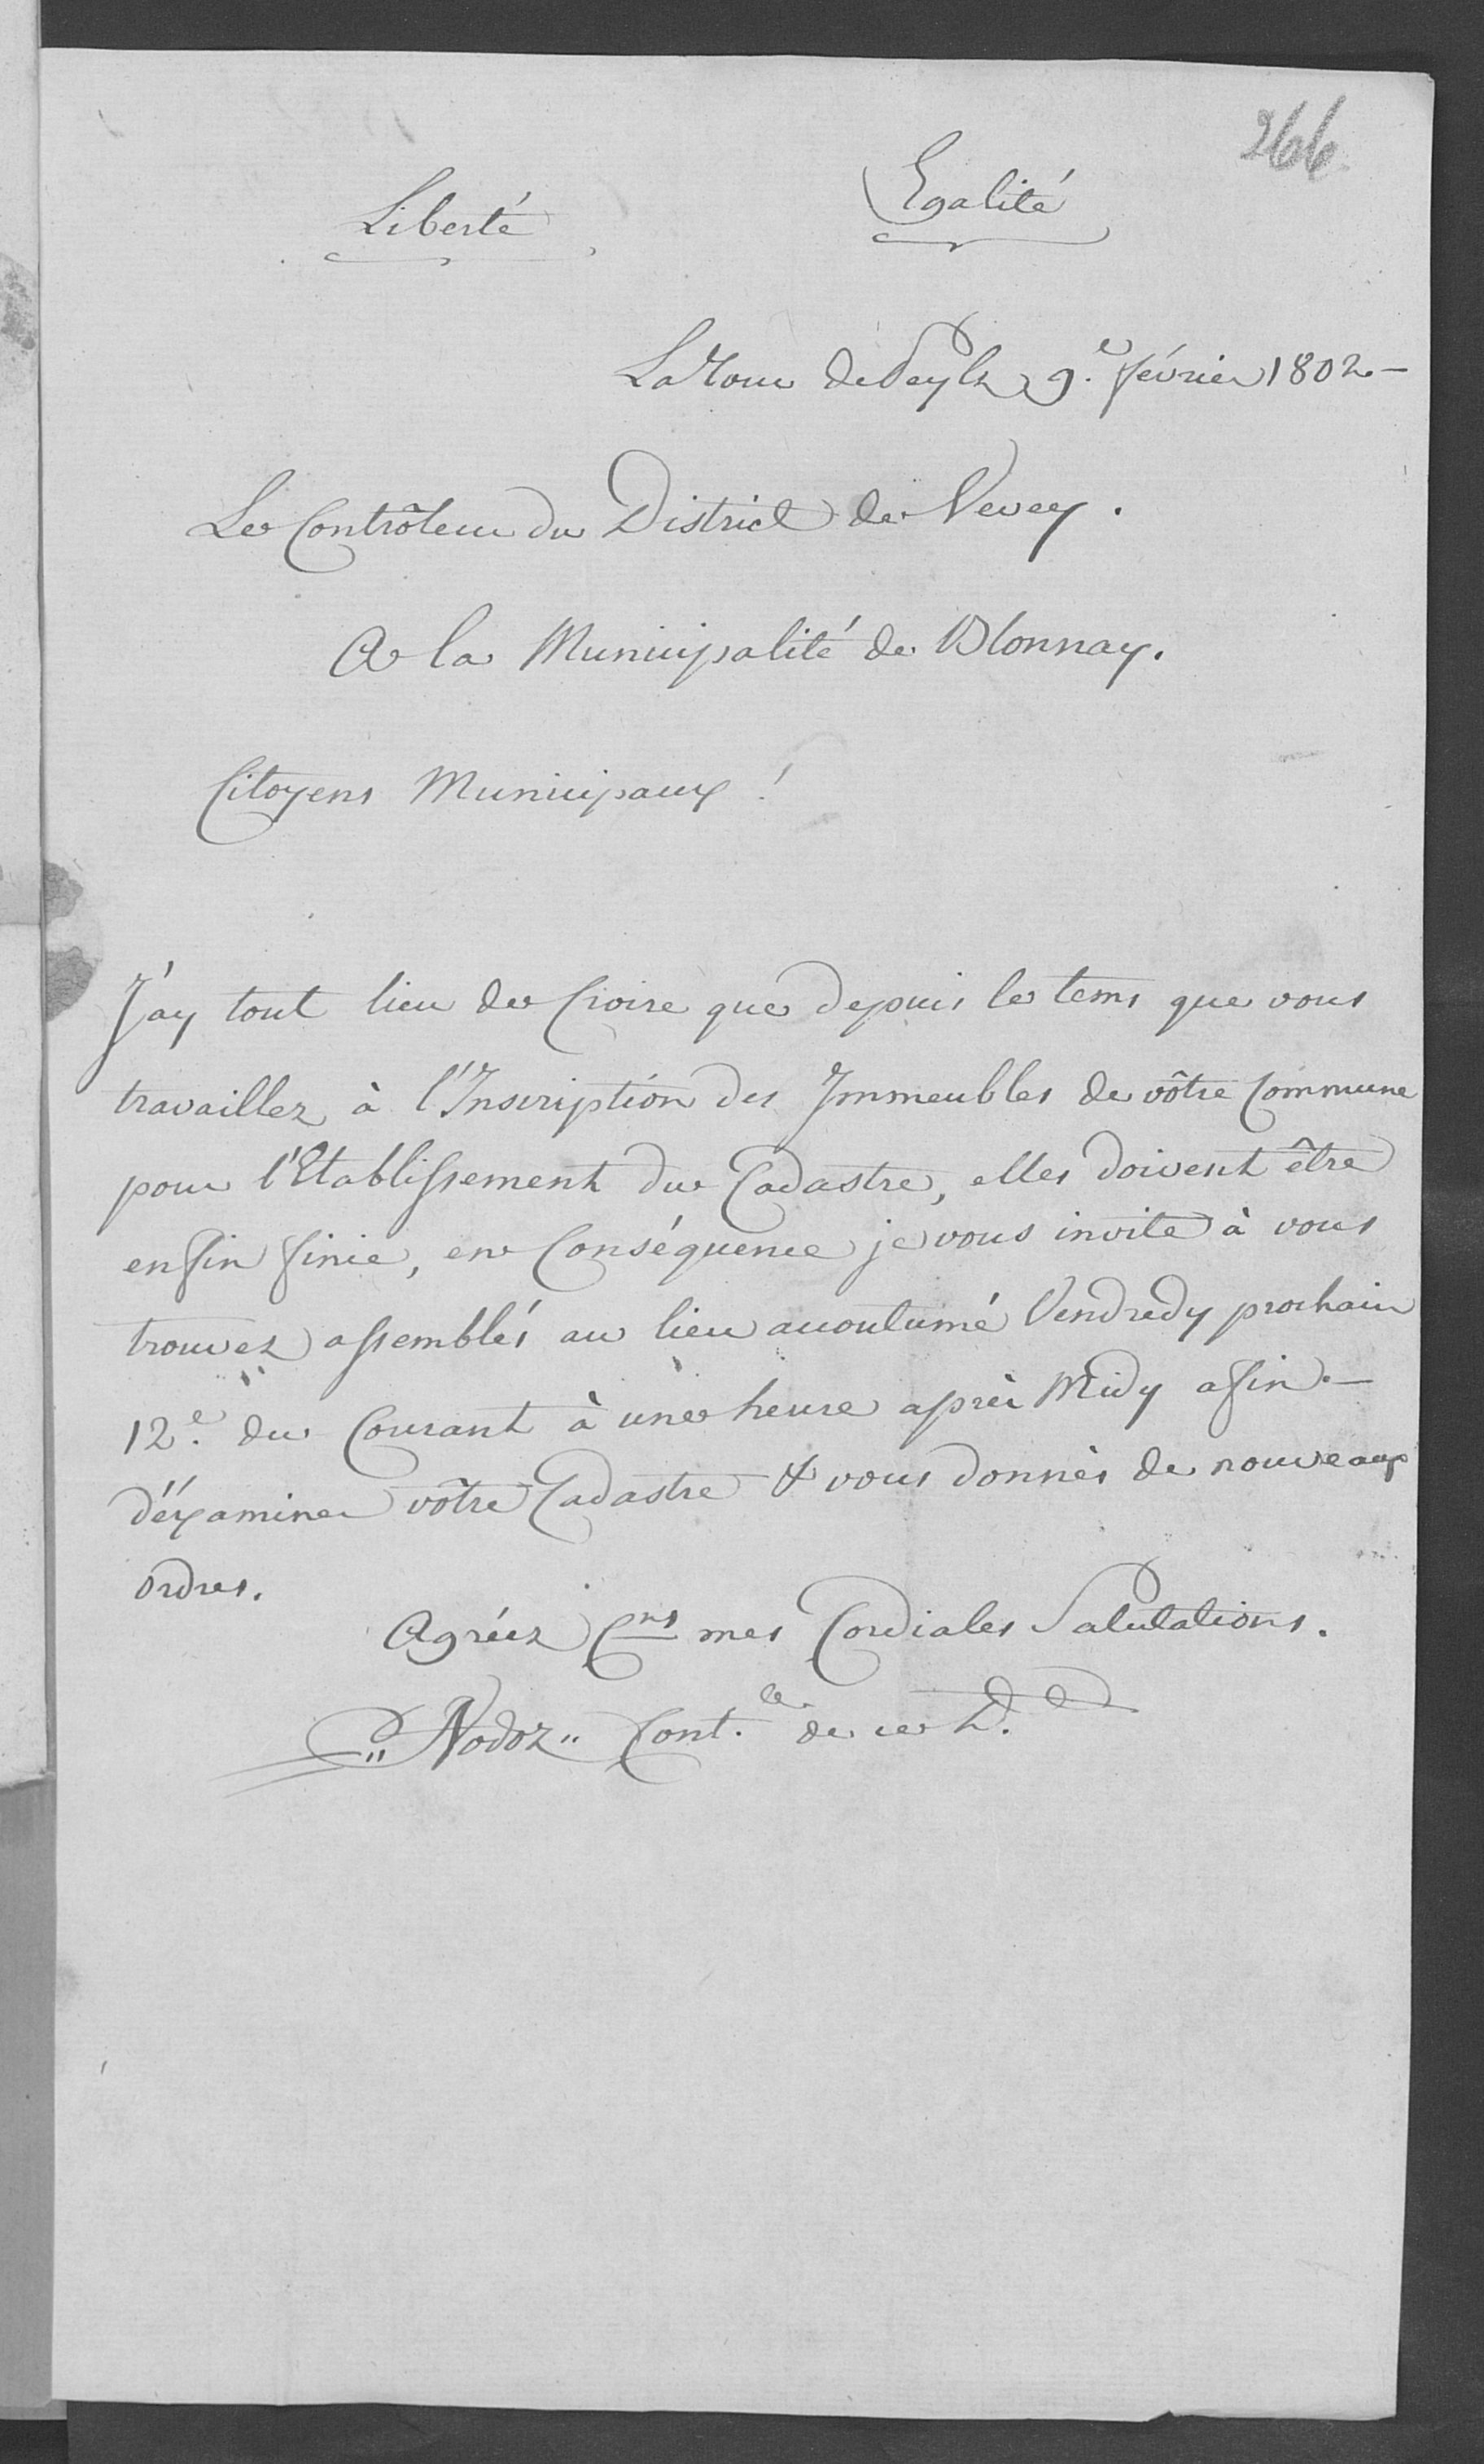 266
Liberté Egalité
La Tour de Peylz 9.e février 1802 –
Le Contrôleur du District de Vevey.
A la Municipalité de Blonnay.
Citoyens Municipaux !
J'ay tout lieu de Croire que depuis le tems que vous
travaillez à l'Inscription des Immeubles de vôtre Commune
pour l'Etablissement du Cadastre, elles doivent être
enfin finie, en Conséquence je vous invite à vous
trouvez assemblés au lieu accoutumé Vendredy prochain
12.e du Courant à une heure après Midy afin –
d'éxaminer vôtre Cadastre & vous donnés de nouveaux
ordres.
Agréez Cns mes Cordiales Salutations.
"Nodoz" Cont.le de ce D.